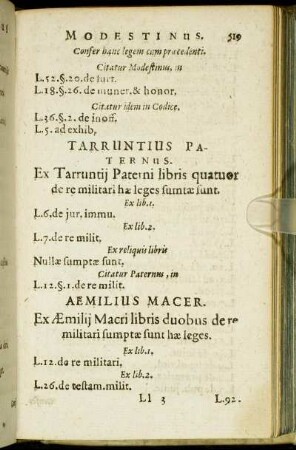 MODESTINUS. 519
Confer hanc legem cum præcedenti.
Citatur Modestinus, in
L.52.§.20.de furt.
L.18.§.26. de muner. & honor,
Citatur idem in Codice,
L.36.§.2. de inoff.
L.5. ad exhib,
TARRUNTIUS PA-
TERNUS.
Ex Tarruntij Paterni libris quatuor
de re militari hæ leges sumtæ sunt.
Ex lib.1.
L.6.de jur. immu.
Ex lib.2.
L.7.de re milit,
Ex reliquis libris
Nullæ sumptæ sunt,
Citatur Paternus, in
L.12.§.1.de re milit.
AEMILIUS MACER.
Ex Æmilij Macri libris duobus de re
militari sumptæ sunt hæ leges.
Ex lib.1.
L.12.de re militari,
Ex lib.2.
L.26.de testam.milit.
Ll 3 L.92.